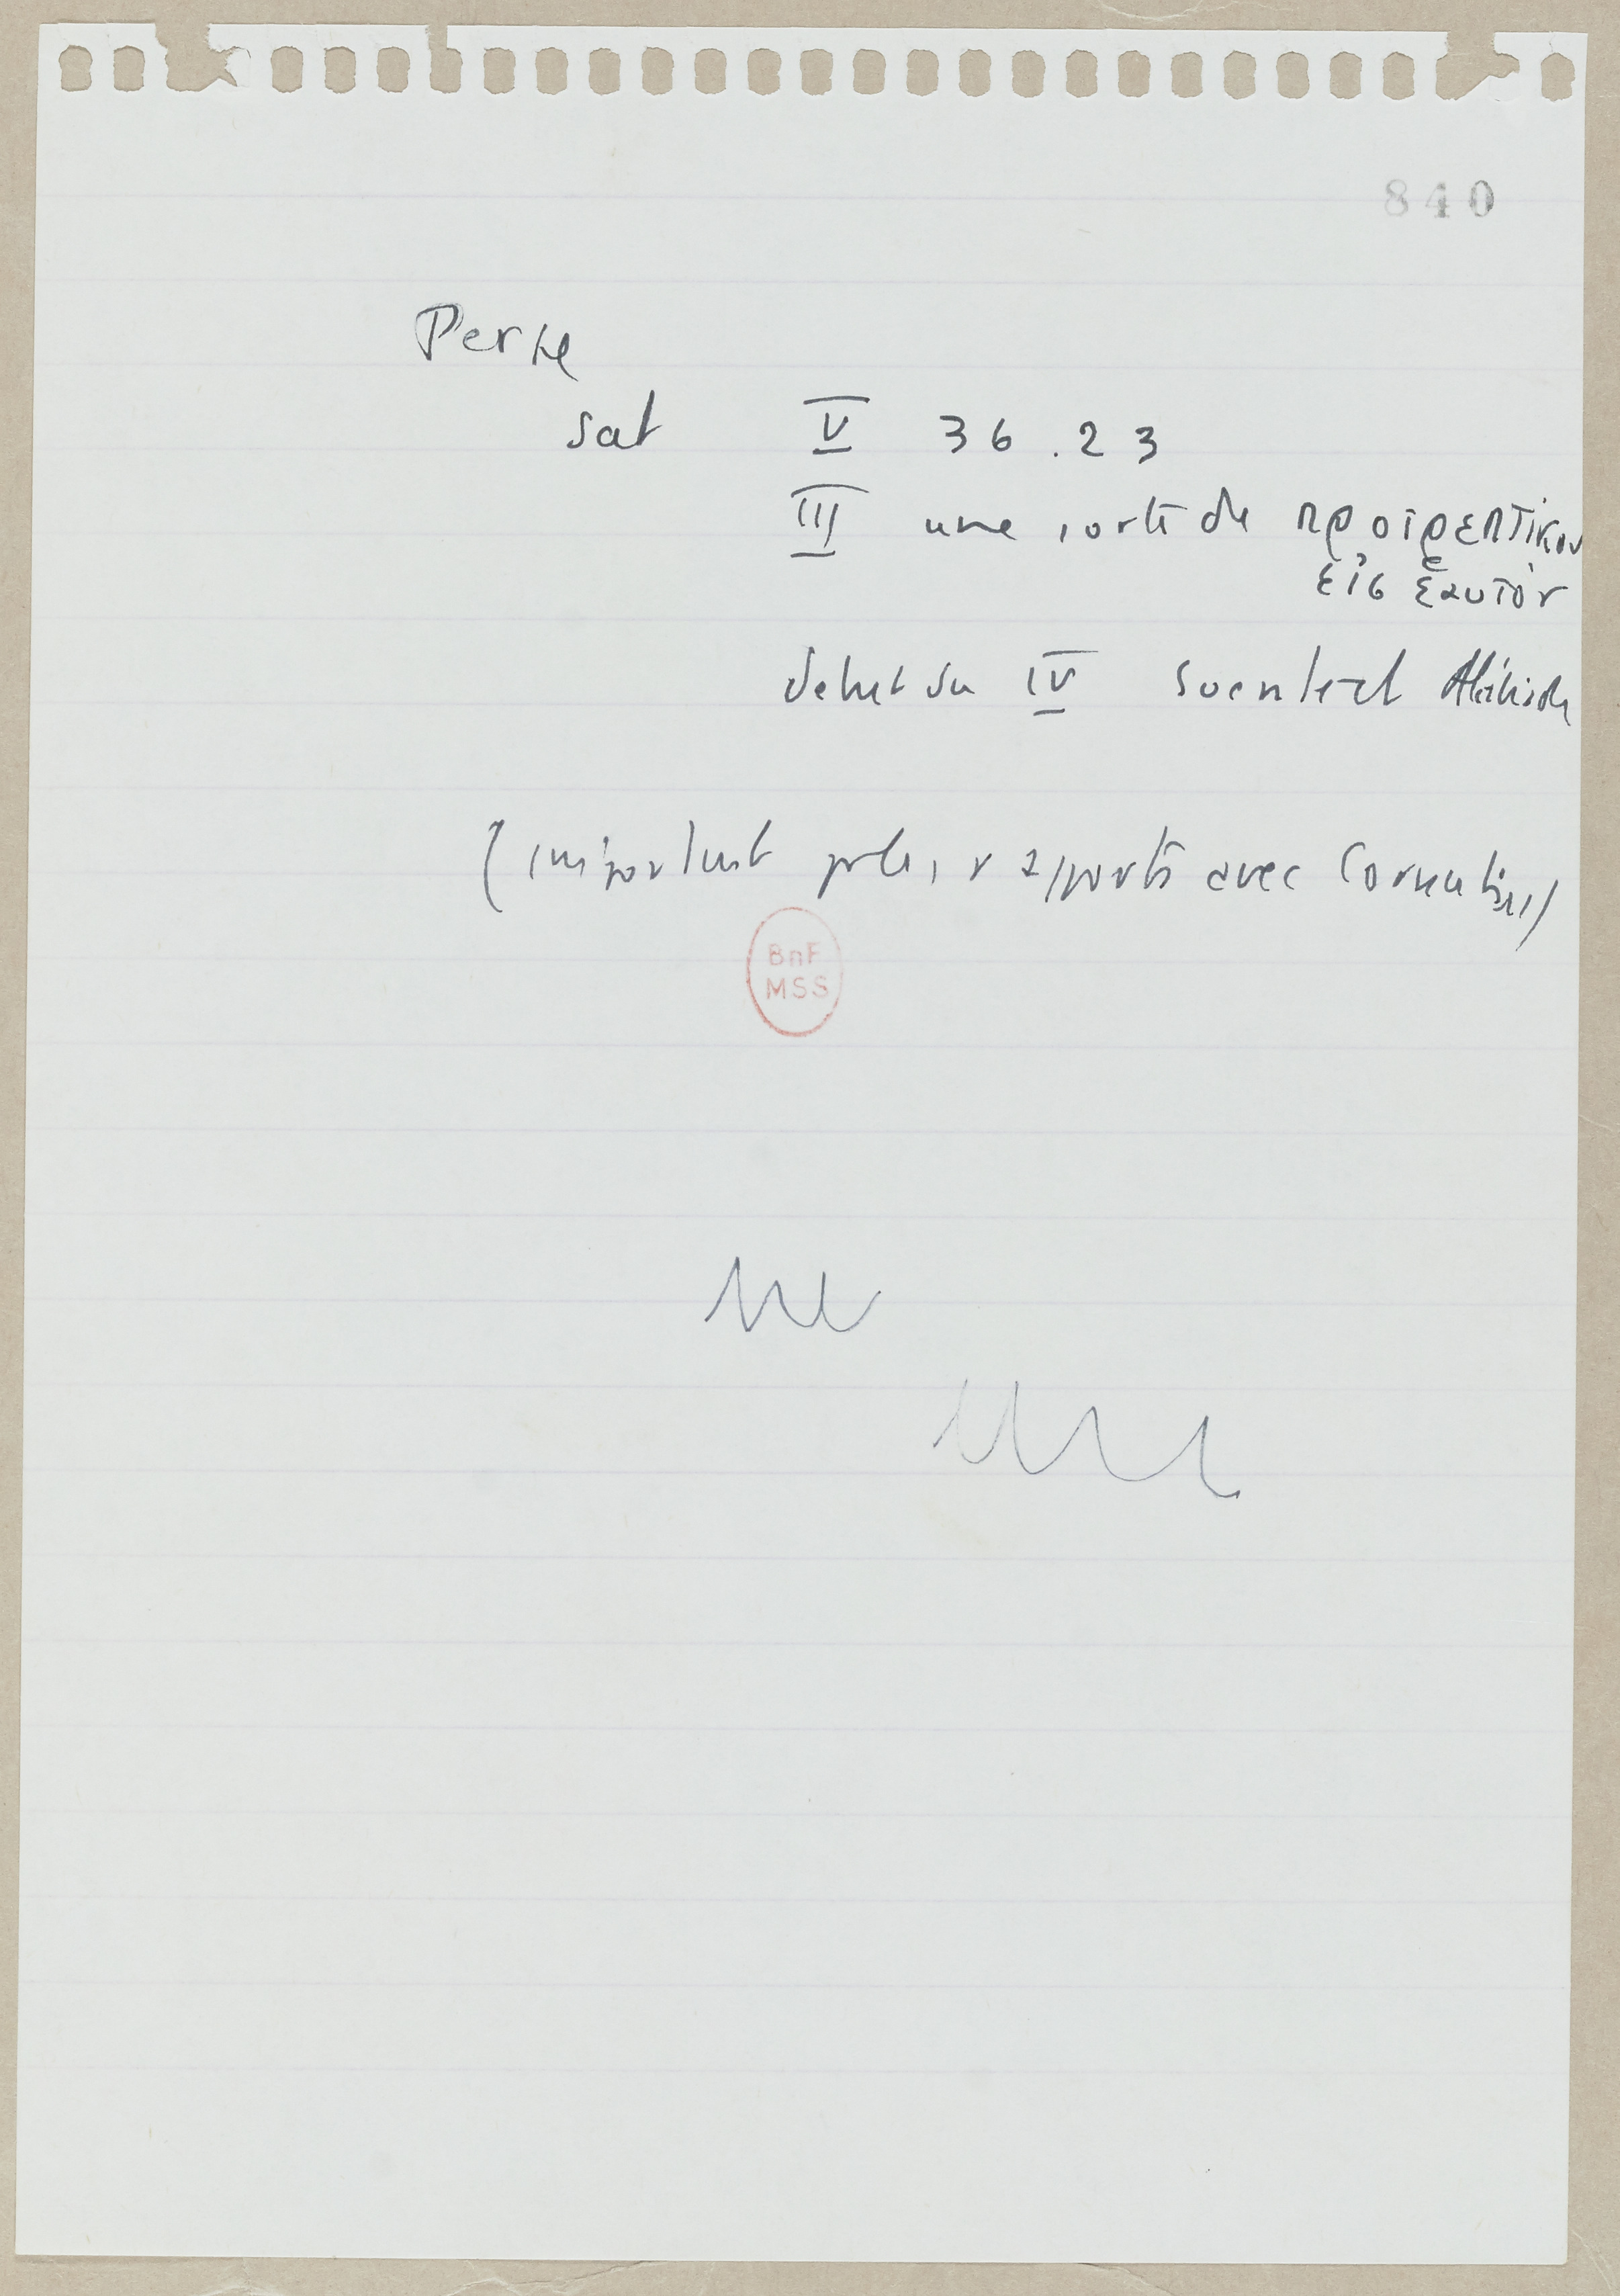 840
Perse
sat V 36.23
III une sorte de προτρεπτικον
εἰς ἑαυτόν
debut du IV Alcibiade
(important pr les rapports avec Cornutus)
BnF
MSS